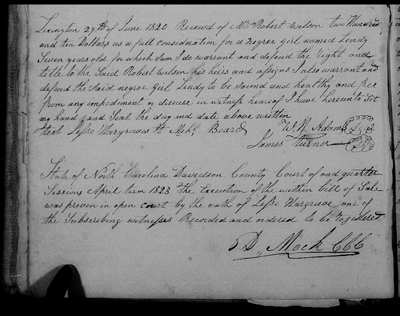 Lexington 29th of June 1820 Received of Mr Robert Wilson two Hundred
and ten Dollars as a full consideration for a negroe girl named Lindy
Seven years old for which Sum I do warrant and defend the right and
title to the Said Robert Wilson his hers and assigns I also warrant and
defend the Said negroe girl Lindy to be sound and healthy and free
from any impediment or disease in witness hearof I have hereunto Set
my hand and Seal the day and date above written
Test Jesse Hargrave M. Beard W. Adams
James Turner
State of North Carolina Davidson County Court of and quarter
Sessions April term 1823 the Execution of the within bill of Sale
was proven in open court by the oath of Jesse Hargrave one of
the Subscribing witnesses Recorded and ordered to be Registered
D. Mock CCC